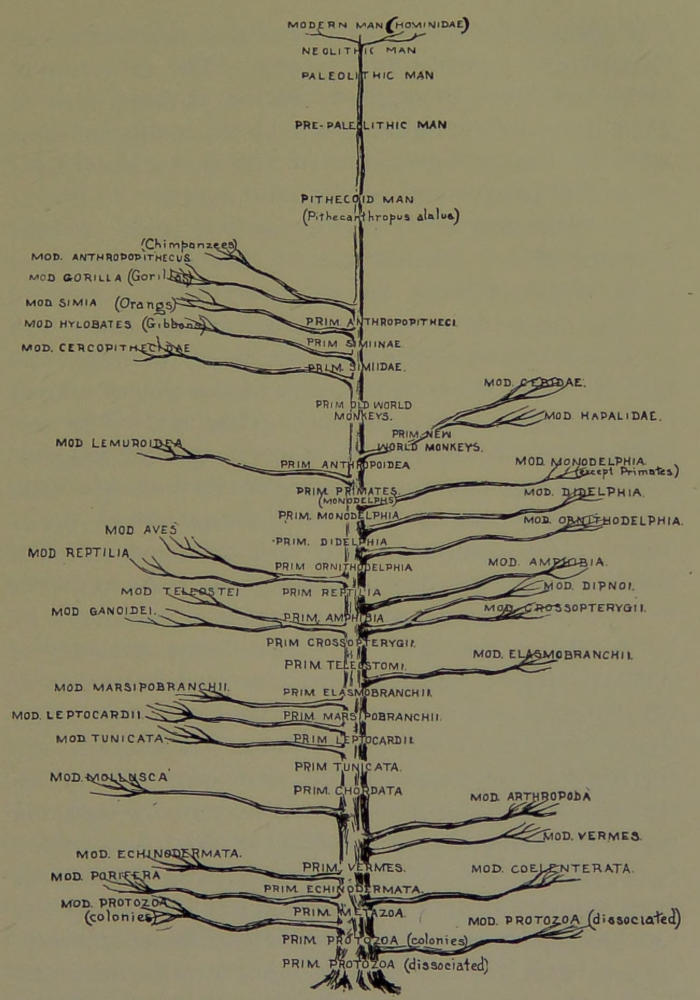 MODERN MAN (HOMINIDAE)
NEOLITHIC MAN
PALEOLITHIC MAN
PRE-PALEOLITHIC MAN
PITHECOID MAN
(Pithecanthropus alalus)
(Chimpanzees)
MOD. ANTHROPOPITHECUS
MOD GORILLA (Gorillas)
MOD SIMIA (Orangs)
MOD HYLOBATES (Gibbons)
PRIM. ANTHROPOPITHECI.
PRIM SIMIINAE.
MOD. CERCOPITHECIDAE
PRIM. SIMIIDAE.
MOD. CEBIDAE.
PRIM OLD WORLD
MONKEYS.
MOD HAPALIDAE.
PRIM NEW
WORLD MONKEYS.
MOD LEMUROIDEA
PRIM ANTHROPOIDEA
MOD. MONODELPHIA
(except Primates)
PRIM. PRIMATES.
(MONODELPHS)
MOD. DIDELPHIA.
PRIM. MONODELPHIA
MOD. ORNITHODELPHIA.
MOD AVES
PRIM. DIDELPHIA
MOD REPTILIA
PRIM ORNITHODELPHIA
MOD. AMPHIBIA.
MOD. DIPNOI.
MOD TELEOSTEI
PRIM REPTILIA
MOD GANOIDEI.
PRIM. AMPHIBIA
MOD. CROSSOPTERYGII.
PRIM CROSSOPTERYGII.
MOD. ELASMOBRANCHII.
PRIM. TELEOSTOMI.
MOD. MARSIPOBRANCHII.
PRIM ELASMOBRANCHII.
MOD. LEPTOCARDII.
PRIM MARSIPOBRANCHII.
MOD. TUNICATA.
PRIM LEPTOCARDII
PRIM TUNICATA.
MOD. MOLLUSCA
PRIM. CHORDATA
MOD. ARTHROPODA
MOD. VERMES.
MOD. ECHINODERMATA.
PRIM. VERMES.
MOD. COELENTERATA.
MOD. PORIFERA
PRIM ECHINODERMATA.
MOD. PROTOZOA
(colonies)
PRIM. METAZOA.
MOD. PROTOZOA (dissociated)
PRIM PROTOZOA (colonies)
PRIM. PROTOZOA (dissociated)